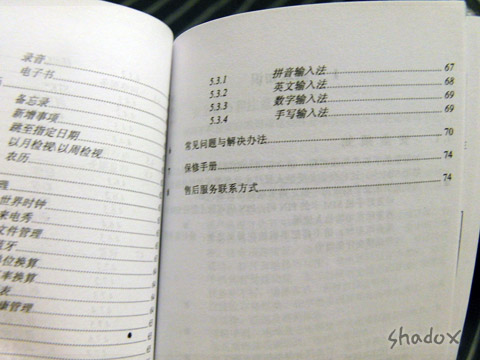 录音
电子书
备忘录
新增事项
跳至指定日期
以月检视/以周检视
农历
世界时钟
来电秀
文件管理
位换算
率换算
表
管理
5.3.1 拼音输入法 67
5.3.2 英文输入法 68
5.3.3 数字输入法 69
5.3.4 手写输入法 69
6 常见问题与解决办法 70
7 保修手册 74
8 售后服务联系方式 74
shadox